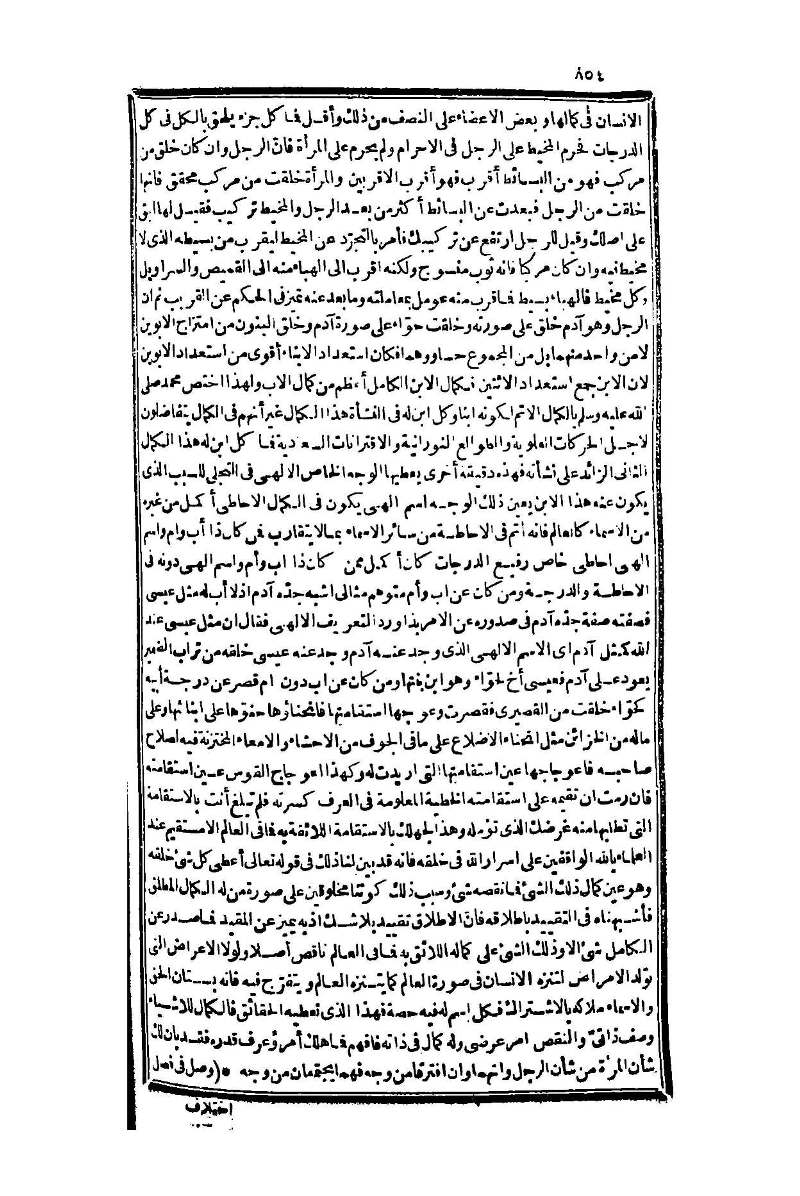 ٨٥٤
الانسان فى كمالها و بعض الاعضاء على النصف من ذلك وأقل فما كل جزء يلحق بالكل فى كل
الدرجات فحرم المخيط على الرجل فى الاحرام ولم يحرم على المرأة فانّ الرجل وان كان خلق من
مركب فهو من البسائط أقرب فهو أقرب الاقربين والمرأة خلقت من مركب محقق فانها
خلقت من الرجل فبعدت عن البسائط أكثر من بعد الرجل والمخيط تركيب فقيل لها ابق
على اصلك وقيل للرجل ارتفع عن تركيبك فأمر بالتجرّد عن المخيط ليقرب من بسيطه الذى لا
مخيط فيه وان كان مركبا فانه ثوب منسوج ولكنه اقرب الى الهباء منه الى القميص والسراويل
وكل مخيط فالهباء بسيط فما قرب منه عومل بمعاملته وما بعد عنه تميز فى الحكم عن القريب ثم ان
الرجل وهو آدم خلق على صورته وخلقت حوّاء على صورة آدم وخلق البنون من امتزاج الابوين
لا من واحد منهما بل من المجموع حسا ووهما فكان استعداد الابناء أقوى من استعداد الابوين
لان الابن جمع استعداد الاثنين فكمال الابن الكامل أعظم من كمال الاب ولهذا اختص محمد صلى
الله عليه وسلم بالكمال الاتم لكونه ابنا وكل ابن له فى النشأة هذا الكمال غير أنهم فى الكمال يتفاضلون
لاجل الحركات العلوية والطوالع النورانية والاقترانات السعدية فما كل ابن له هذا الكمال
الثانى الزائد على نشأته فهذه دقيقة أخرى يعطيها الوجه الخاص الالهى فى التجلى للسبب الذى
يكون عنه هذا الابن يعين ذلك الوجه اسم الهى يكون فى الكمال الاحاطى أكمل من غيره
من الاسماء كالعالم فانه أتم فى الاحاطة من سائر الاسماء بما لا يتقارب فمن كان ذا أب وام واسم
الهى احاطى خاص رفيع الدرجات كان أكمل ممن كان ذا اب وأم واسم الهى دونه فى
الاحاطة والدرجة ومن كان عن اب وأم متوهم مثالى اشبه جدّه آدم اذ لا أب له مثل عيسى
فصفته صفة جدّه آدم فى صدوره عن الامر بذا ورد التعريف الالهى فقال ان مثل عيسى عند
الله كمثل آدم اى الاسم الالهى الذى وجد عنه آدم وجد عنه عيسى خلقه من تراب الضمير
يعود على آدم فعيسى أخ لحوّاء وهو ابن بنتها ومن كان عن اب دون ام قصر عن درجة أبيه
كحوّاء خلقت من القصيرى فقصرت وعوجها استقامتها فانحناؤها حنوّها على ابنائها وعلى
ماله من الخزائن مثل انحناء الاضلاع على ما فى الجوف من الاحشاء والامعاء المختزنة فيه لصلاح
صاحبه فاعوجاجها عين استقامتها التى اريدت له وكهذا اعوجاج القوس عين استقامته
فان رمت ان تقيمه على استقامته الخطية المعلومة فى العرف كسرته فلم تبلغ أنت بالاستقامة
التى تطلبها منه غرضك الذى تؤمله وهذا لجهلك بالاستقامة اللائقة به فما فى العالم الا مستقيم عند
العلماء بالله الواقفين على اسرار الله فى خلقه فانه قد بين لنا ذلك فى قوله تعالى أعطى كل شئ خلقه
وهو عين كمال ذلك الشئ فما نقصه شئ وسبب ذلك كوننا مخلوقين على صورة من له الكمال المطلق
فأشبهناه فى التقييد باطلاقه فانّ الاطلاق تقييد بلا شك اذ به يميز عن المقيد فما صدر عن
الكامل شئ الا وذلك الشئ على كماله اللائق به فما فى العالم ناقص أصلا ولولا الاعراض التى
تولد الامراض لتنزه الانسان فى صورة العالم كما يتنزه العالم و يتفرّج فيه فانه بستان الحق
والاسماء ملاكه بالاشتراك فكل اسم له فيه حصة فهذا الذى تعطيه الحقائق فالكمال للاشياء
وصف ذاتى والنقص امر عرضى وله كمال فى ذاته فافهم فما هلك امرؤ عرف قدره فقد بان لك
شأن المرأة من شأن الرجل وانهما وان افترقا من وجه فهما يجتمعان من وجه * (وصل فى فصل
اختلاف